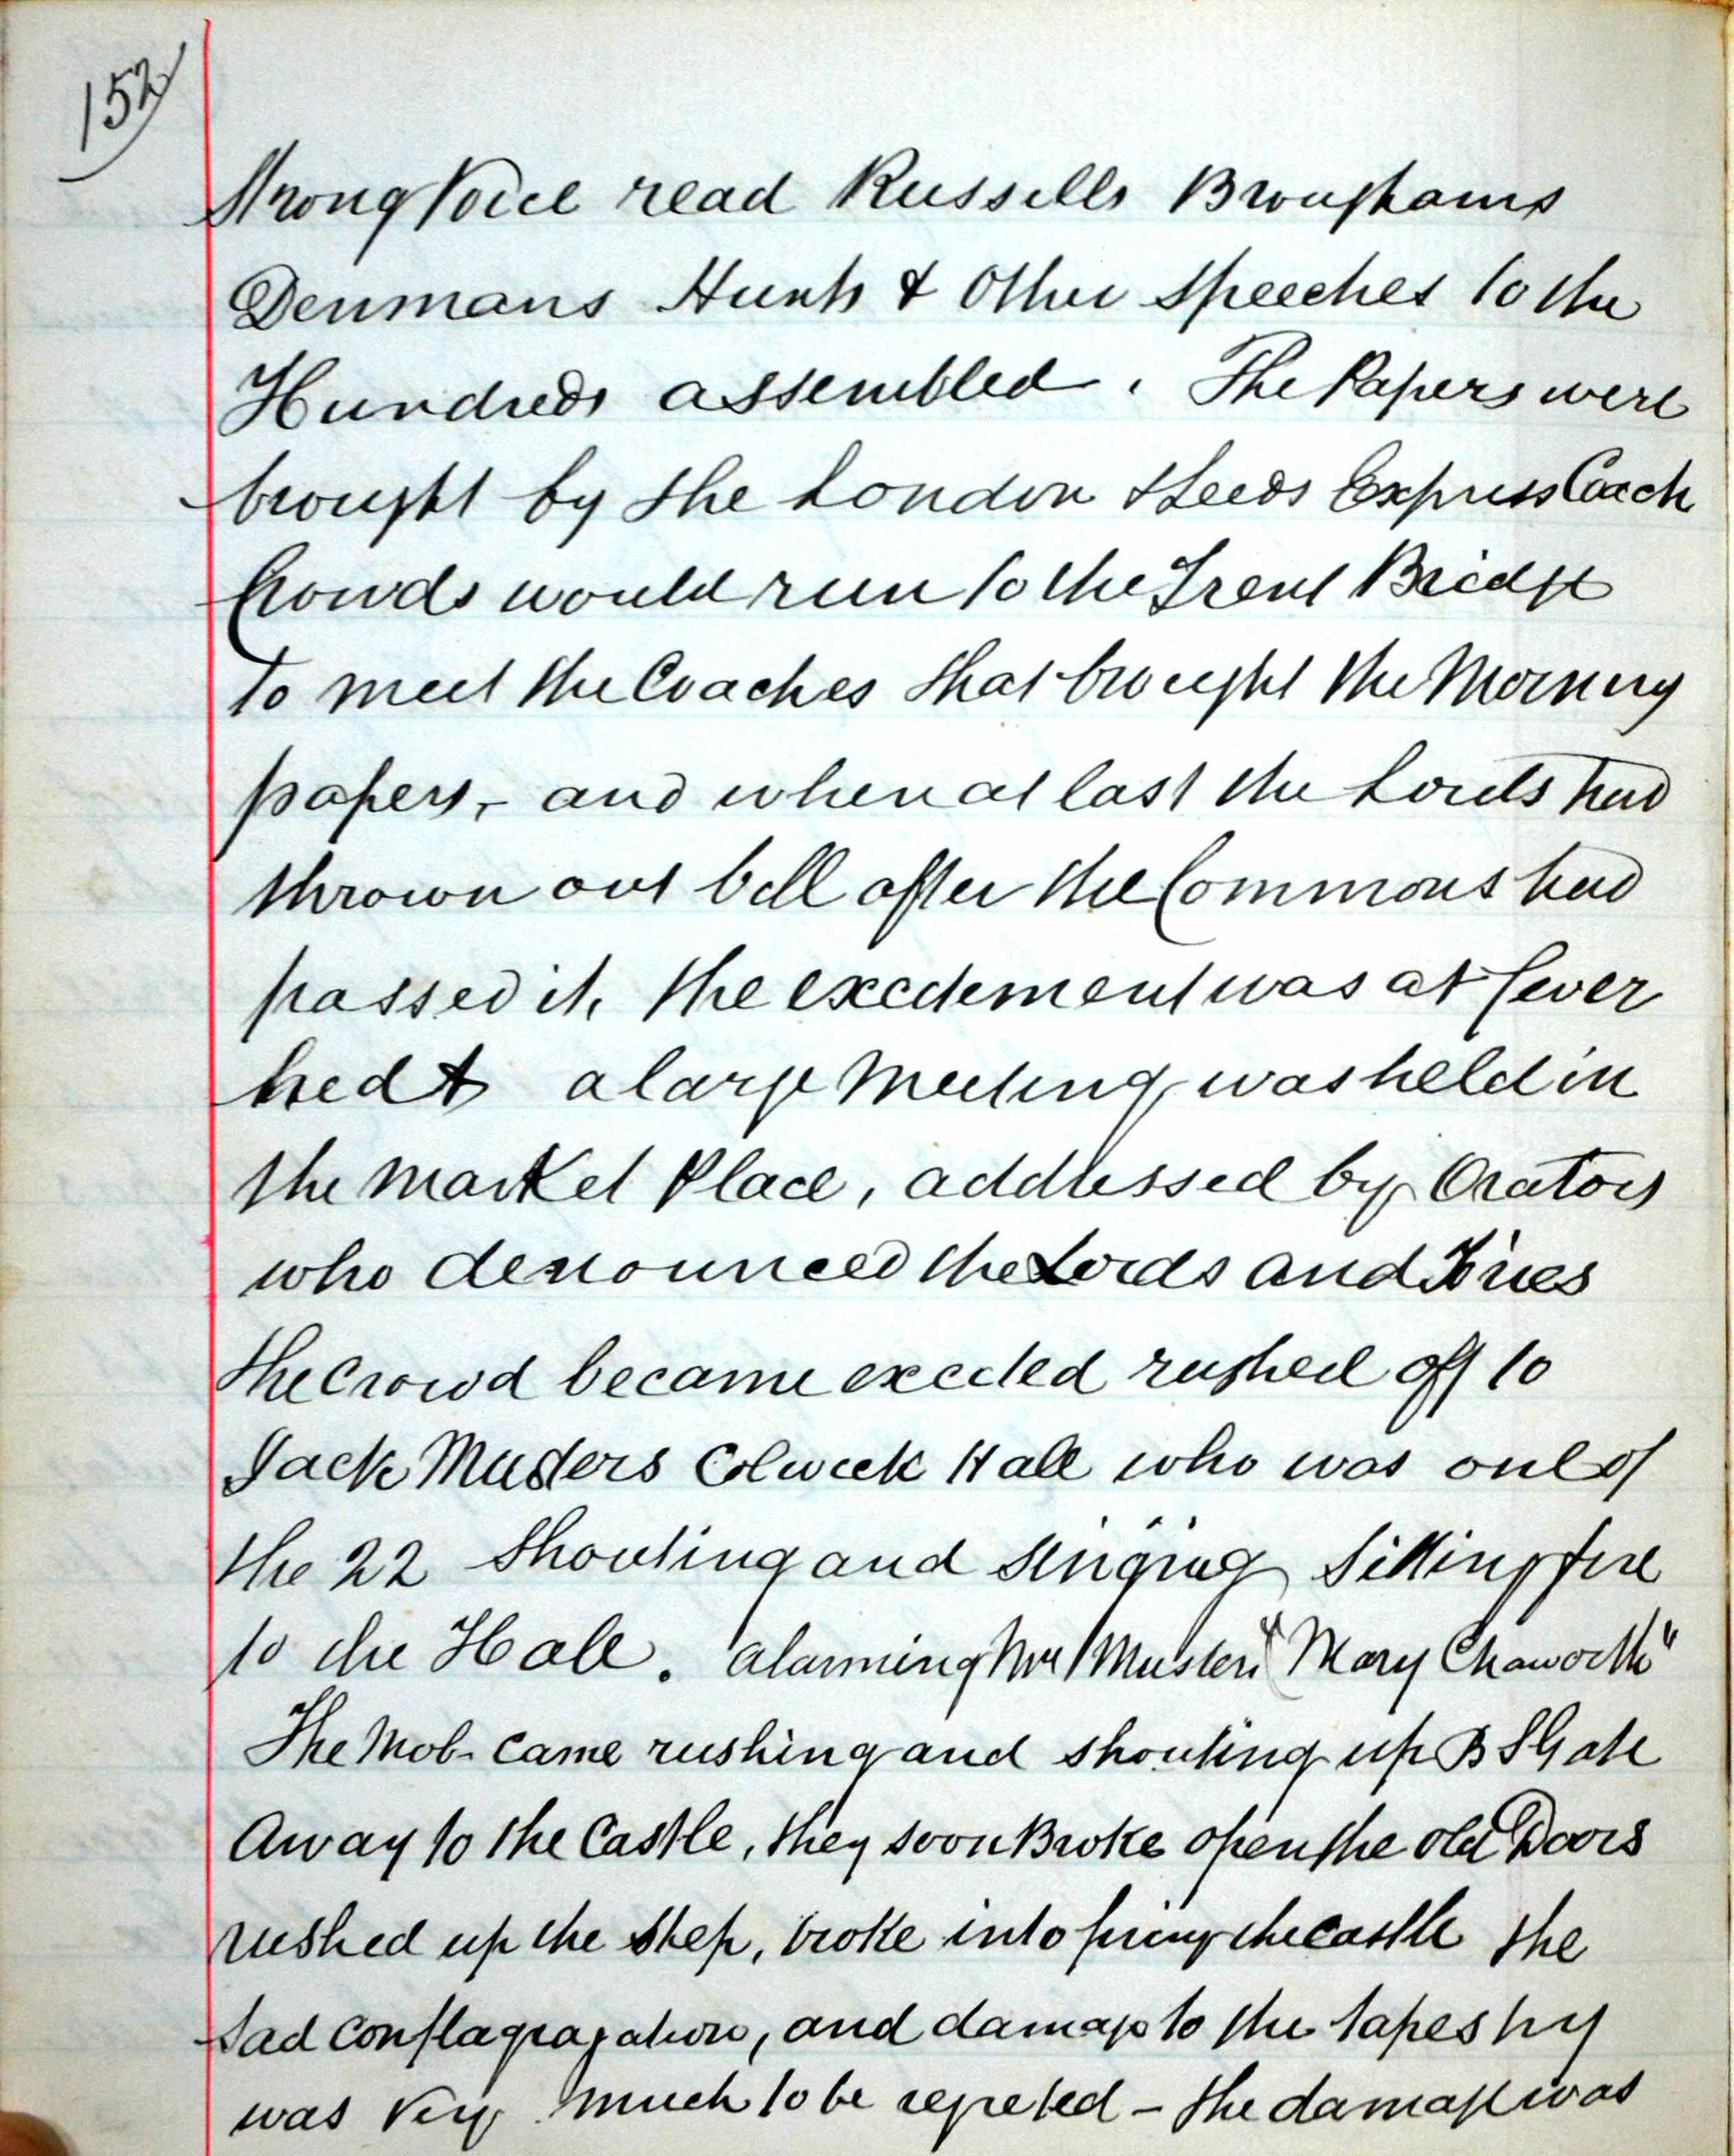 152
Strong Voice read Russells Broughams
Denmans Hunts & Other Speeches to the
Hundreds assembled. The Papers were
brought by the London & Leeds Express Coach
Crowds would run to the Trent Bridge
to meet the Coaches that brought the Morning
papers, - and when at last the Lords had
thrown out bill after the Commons had
passed it, the excitement was at fever
heat a large Meeting was held in
the Market Place, addressed by Orators
who denounced the Lords and Tories
the Crowd became excited rushed off to
Jack Musters Colwick Hall who was one of
the 22 Shouting and Singing Setting fire
to the Hall. alarming Mrs Musters "Mary Chaworth"
The Mob- came rushing and shouting up B S Gate
Away to the Castle, they soon Broke open the old Doors
rushed up the Step, broke into firing the castle the
Sad conflagragation, and damage to the tapestry
was very much to be regreted - the damage was